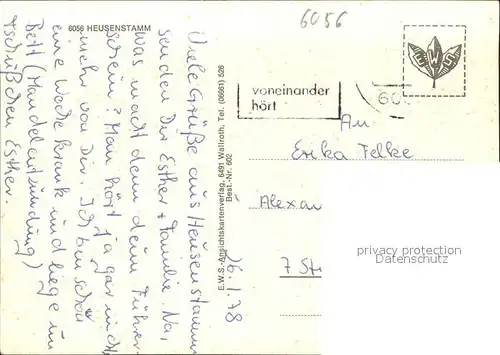 6056 HEUSENSTAMM
Viele Grüße aus Heusenstamm
senden Dir Esther + Familie. Na,
was macht denn dein Führer-
schein? Man hört ja gar nichts
mehr von Dir. Ich bin schon
eine Woche krank und liege im
Bett (Mandelentzündung)
Tschüßchen Esther.
E.W.S.-Ansichtskartenverlag, 6491 Wallroth, Tel. (06661) 526
Best.-Nr. 602
26.1.78
6056
EWS
voneinander
hört
60
An
Erika Felke
Alexan
7 St
privacy protection
Datenschutz